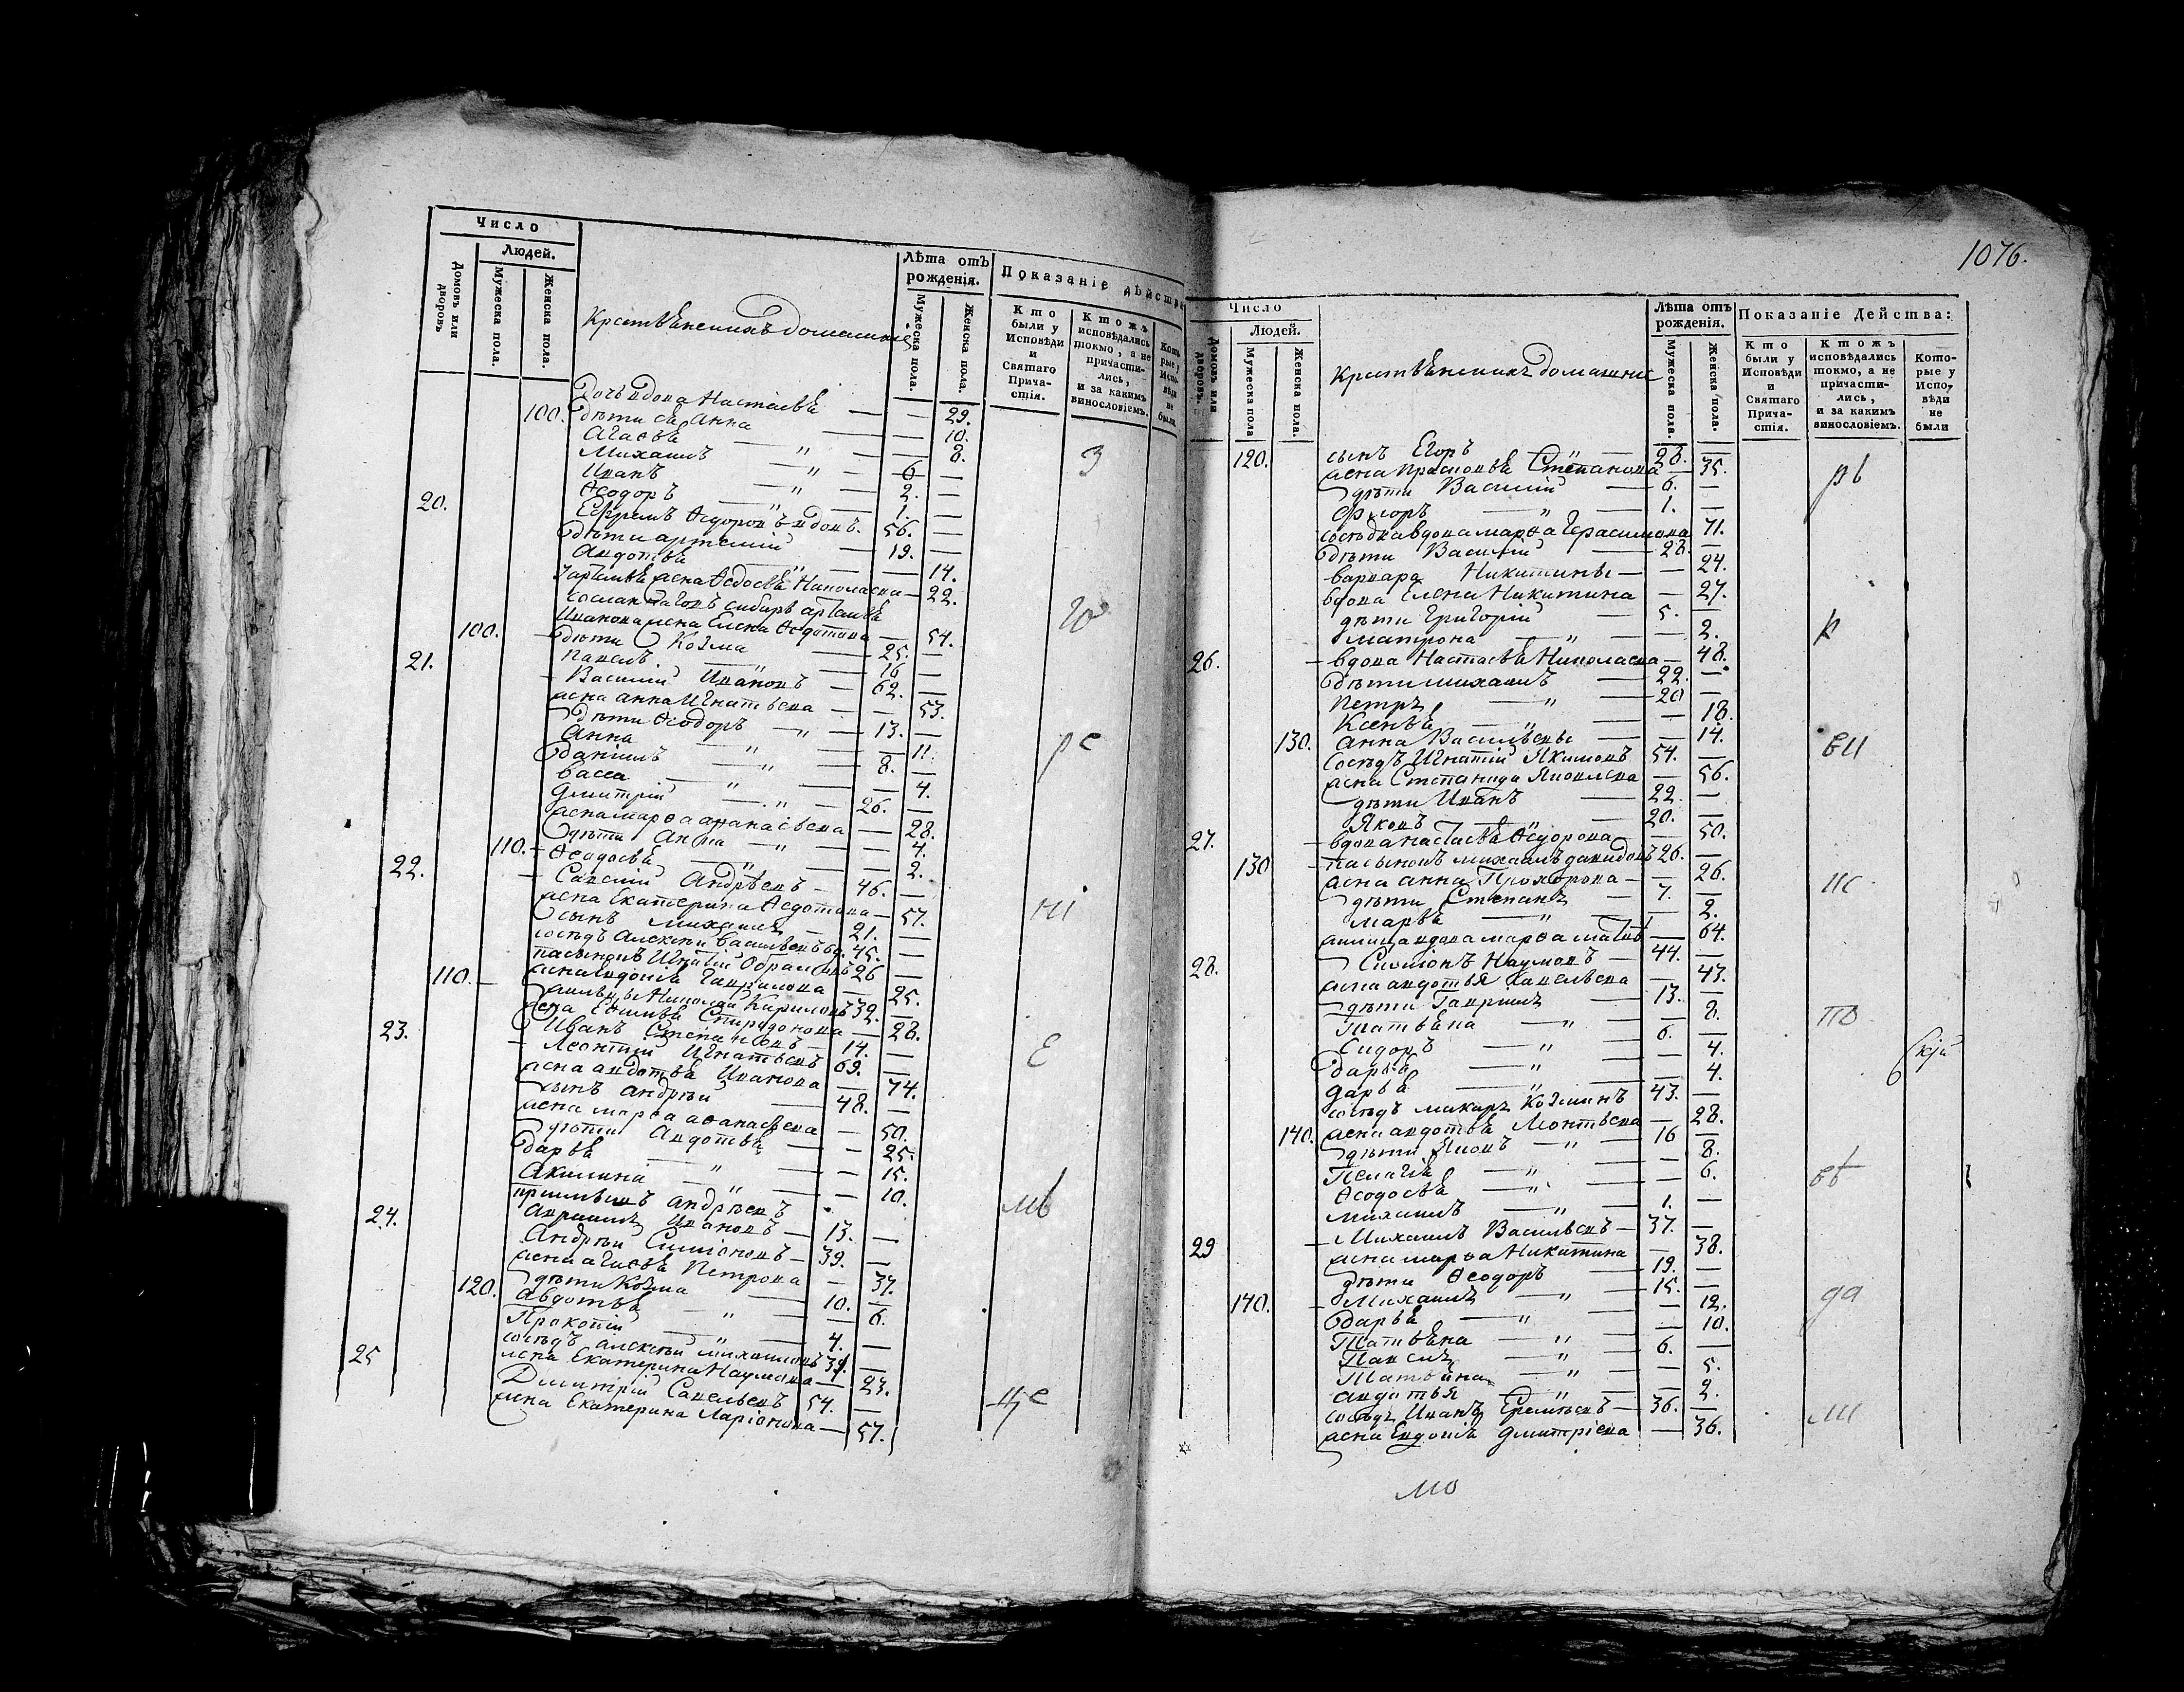 Число
Людей.
Домовъ или дворовъ
Мужеска пола.
Женска пола.
Лѣта отъ рожденія.
Мужеска пола.
Женска пола.
Показаніе дѣйства
Кто были у Исповѣди и Святаго Прича-стія.
Ктожъ исповѣдались токмо, а не причасти-лись, и за какимъ винословіемъ.
Кото рые у Испо-вѣди не были
Дочь вдова Настасья — — 29.
100. дѣти ея Анна — — 10.
Агафья — — 8.
Михаилъ — " — 6 —
Иванъ — " — 2. —
Ѳеодоръ — " — 1. —
20. Ефремъ Ѳедоровъ вдовъ. 56. —
дѣти артемій — 19. —
Авдотья — " — — 14.
жена Ѳедосья Николаева — 22.
Иванова жена Елена Ѳедотова — 54.
100. дѣти Козма — 25. —
Павелъ — " — 16 —
21. Василій Ивановъ — 62. —
жена анна Игнатьева — — 53.
дѣти Ѳеодоръ — " — 13. —
Анна — " — — 11.
даніилъ — " — 8. —
васса — " — — 4.
Дмитрій — " — 26. —
жена марѳа — 28.
дѣти Анна — " — — 4.
110. Ѳеодосья — " — — 2.
22. Савелій Андрѣевъ — 46. —
жена Екатерина Ѳедотова — 57.
сынъ михаилъ — 21. —
сосѣдъ алексѣй васильевъ 45. —
пасынокъ Игнатій 26 —
110. жена Гаврилова — 25.
Николай Кириловъ 32. —
жена Спиридонова — 28.
Иванъ Степановъ — 14. —
23. Леонтій Игнатьевъ 69. —
жена авдотья Иванова — 74.
сынъ андрѣй — 48. —
жена марѳа аѳанасьева — 50.
дѣти Авдотья — — 25.
дарья — — 15.
Акилина — " — — 10.
андрѣевъ
Ивановъ — 13. —
24. Андрѣй Симіоновъ — 39. —
жена агафья Петрова — 37.
120. дѣти Козма — 10. —
Авдотья — " — — 6.
Прокопій — 4. —
сосѣдъ алексѣй михаиловъ 39. —
жена Екатерина Наумова — 23.
25 Димитрій Савельевъ 54. —
жена Екатерина Ларіонова — 57.
1076.
Число
Людей.
Домовъ или дворовъ.
Мужеска пола
Женска пола.
Лѣта отъ рожденія.
Мужеска пола.
Женска пола.
Показаніе Действа:
Кто были у Исповѣди и Святаго Прича-стія.
Ктожъ исповѣдались токмо, а не причасти-лись, и за какимъ винословіемъ.
Кото-рые у Испо-вѣди не были
120. сынъ Егоръ — " — 28. —
жена Степанова — 35.
дѣти Василій — 6. —
Флоръ — " — 1. —
сосѣдка вдова марѳа Герасимова 71.
дѣти Василій — 28. —
варвара Никитины — — 24.
вдова Елена Никитина — 27.
дѣти Григорій — 5. —
матрона — " — — 2.
26. вдова Настасья Николаева — 48.
дѣти михаилъ — 22. —
Петръ — " — 20 —
Ксенья — " — — 18.
130. Анна Васильевы — — 14.
сосѣдъ Игнатій Якимовъ 54. —
жена Степанида Яковлева — 56.
дѣти Иванъ — 22. —
Яковъ — " — 20. —
27. вдова настасья Ѳедорова — 50.
130 пасынокъ михаилъ давидовъ 26. —
жена анна Прохорова — — 26.
дѣти Степанъ — 7. —
марья — " — — 2.
вдова марѳа — 64.
28. Симіонъ Наумовъ — 44. —
жена авдотья Савельева — 43.
дѣти Гавриилъ — 13. —
Татьяна — " — — 8.
Сидоръ — " — 6. —
дарья — " — — 4.
дарья — " — — 4.
сосѣдъ макаръ Козминъ 43. —
140. жена авдотья Леонтьева — 28.
дѣти Яковъ — " — 16 —
Пелагія — " — — 8.
Ѳеодосья — " — — 6.
михаилъ — " — 1. —
29 Михаилъ Васильевъ — 37. —
жена марѳа Никитина — 38.
дѣти Ѳеодоръ — 19. —
140. Михаилъ — " — 15. —
дарья — " — — 12.
Татьяна — " — — 10.
Павелъ — " — 6. —
Татьяна — " — — 5.
авдотья — " — — 2.
сосѣдъ Иванъ Еремѣевъ — 36. —
жена Евдокія Дмитріева — 36.